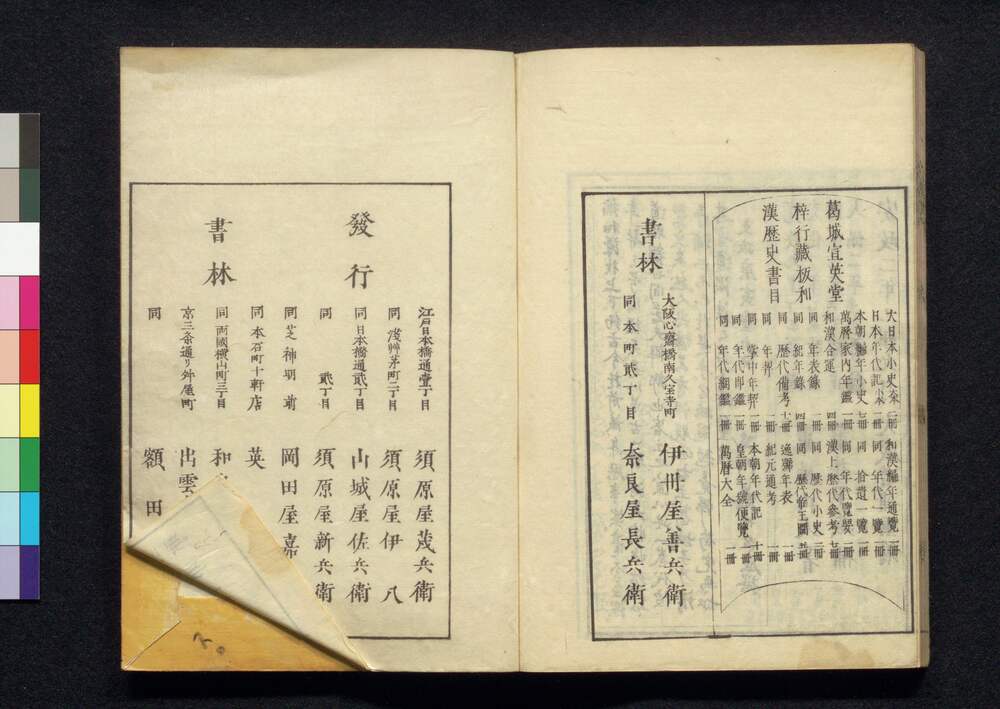 葛城宣英堂
梓行藏板和
漢歴史書目
大日本小史 二冊 和漢編年通覧 一冊
日本年代記 二冊 同 年代一覧 一冊
本朝編年小史 同 拾遺一覧 一冊
萬暦家内年鑑 一冊 同 年代覧要 一冊
和漢合運 四冊 漢上歴代参考
同 年表録 一冊 同 歴代小史
同 紀年録 四冊 同 歴代帝王圖
同 歴代備考 逸聯年表 一冊
同 年契 一冊 紀元通考
同 掌中年契 一冊 本朝年代記 十冊
同 年代印鑑 一冊 皇朝年號便覧 一冊
同 年代網鑑 一冊 萬暦大全 一冊
書林
大阪心齋橋南久宝寺町 伊丹屋善兵衛
同本町貳丁目 奈良屋長兵衛
發行
書林
江戸日本橋通壹丁目 須原屋茂兵衛
同浅艸茅町二丁目 須原屋伊八
同日本橋通貳丁目 山城屋佐兵衛
同 貳丁目 須原屋新兵衛
同芝神明前 岡田屋嘉
同本石町十軒店 英
同両國横山町三丁目 和
京三条通り舛屋町 出雲
同 額田